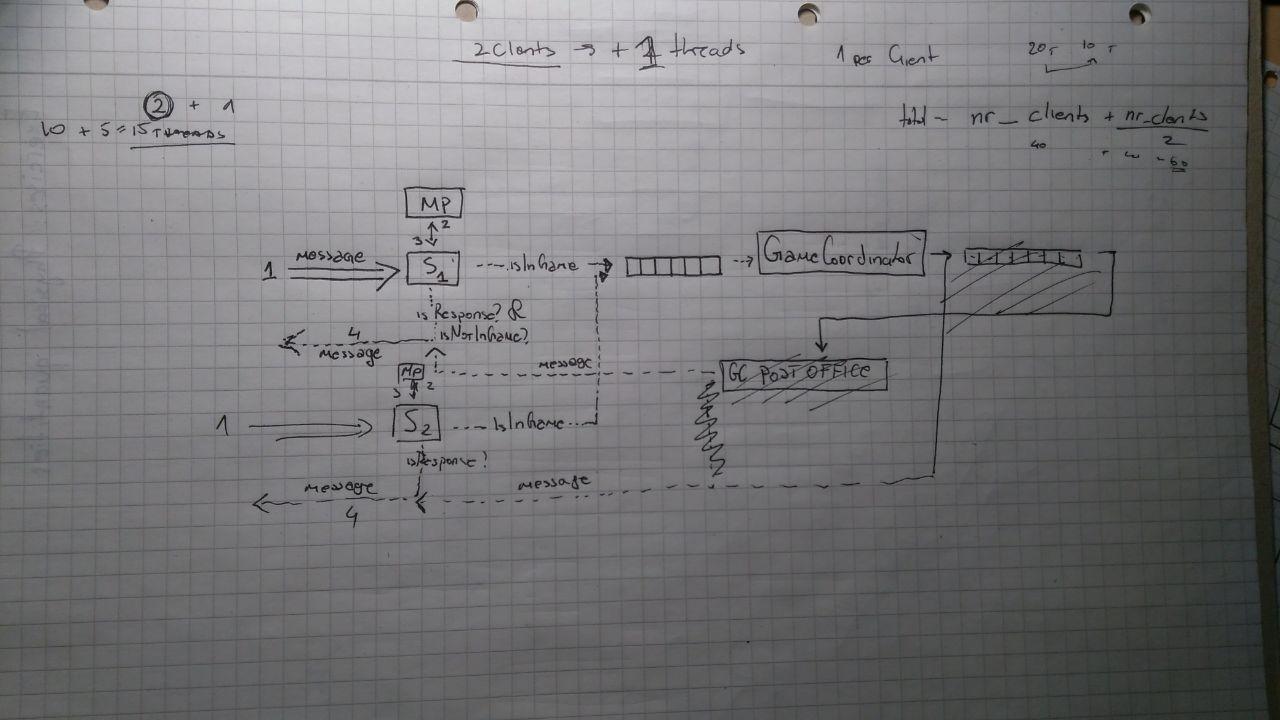 2 Clients → + 1 threads
1 per Client
20T 10 T
② + 1
10 + 5 = 15 THREADS
total = nr_clients + nr_clients
2
40
60
MP
3 2
1 message
S1
isInGame
GameCoordinator
isResponse? &
isNotInGame?
4
message
MP
3 2
message
GC POST OFFICE
1
S2
IsInGame
isResponse?
message
message
4